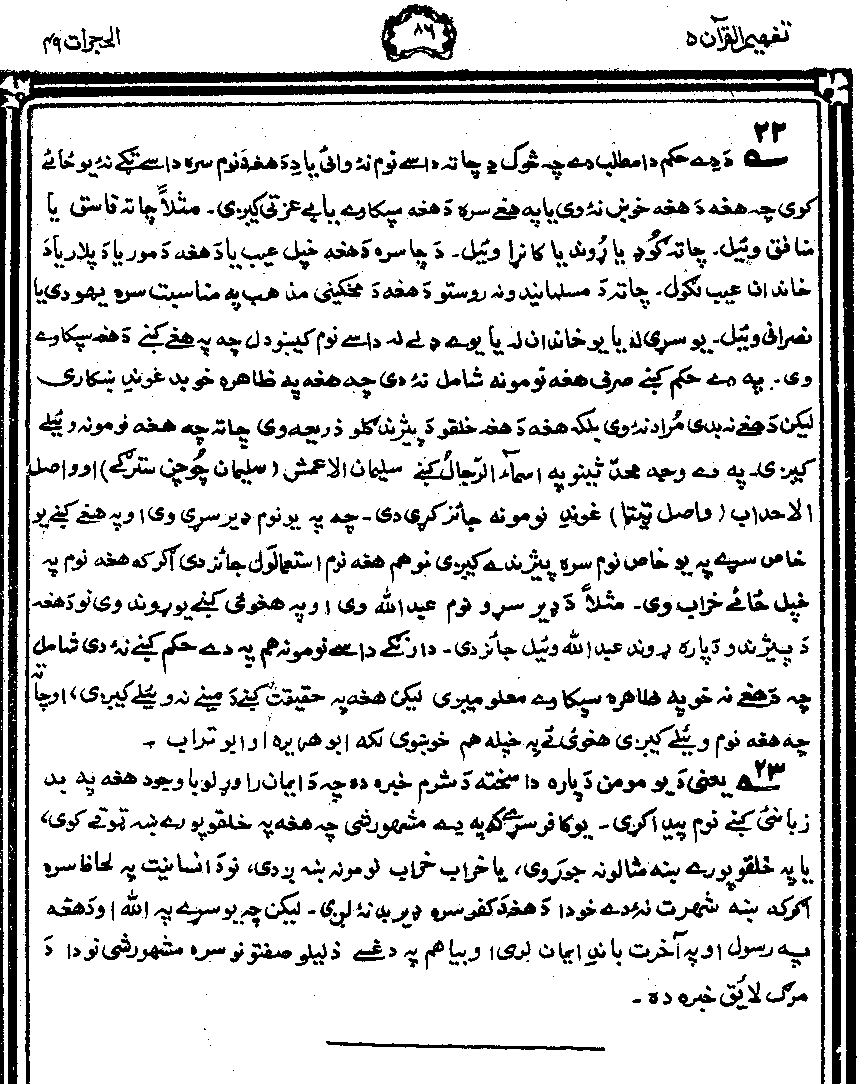 تفهيم القرآن ۵
۸۶
الحجرات ۴۹
۲۲ دَ دے حکم دا مطلب دے چه څوک دِ چا ته داسے نوم نۀ وائی یا دِ دَ هغۀ نوم سره داسے ټکے نۀ یو ځائے
کوی چه هغه دَ هغه خوښ نۀ وی یا په هغے سره دَ هغه سپکاوے یا بے عزتی کیږی۔ مثلاً چا ته فاسق یا
منافق وئیل۔ چا ته ګوډ یا ړوند یا کانړا وئیل۔ دَ چا سره دَ هغه خپل عیب یا دَ هغه دَ مور یا دَ پلار یا دَ
خاندان عیب لګول۔ چا ته دَ مسلمانیدو نه روستو دَ هغه دَ مخکینی مذهب په مناسبت سره یهودی یا
نصرانی وئیل۔ یو سړی له یا یو خاندان له یا یوے ډلے له داسے نوم کیښودل چه په هغے کښے دَ هغه سپکاوے
وی۔ په دے حکم کښے صرف هغه نومونه شامل نۀ دی چه هغه په ظاهره خو بد غوندِ ښکاری
لیکن دَ هغے نه بدی مُراد نۀ وی بلکه هغه دَ هغه خلقو دَ پیژندګلو ذریعه وی چا ته چه هغه نومونه وئیلے
کیږی۔ په دے وجه محدّثینو په اسمآءُ الرّجالُ کښے سلیمان الاعمش (سلیمان چُوجَن سترګے) او واصل
الاحداب (واصل ټیټا) غوندِ نومونه جائز کړی دی۔ چه په یو نوم ډیر سړی وی او په هغے کښے یو
خاص سړے په یو خاص نوم سره پیژندے کیږی نو هم هغه نوم استعمالول جائز دی اګر که هغه نوم په
خپل ځائے خراب وی۔ مثلاً دَ ډیر سړو نوم عبدالله وی او په هغوئی کښے یو ړوند وی نو دَ هغه
دَ پیژندو دَ پاره ړوند عبدالله وئیل جائز دی۔ دارنګے داسے نومونه هم په دے حکم کښے نۀ دی شامل
چه دَ هغے نه خو په ظاهره سپکاوے معلومیږی لیکن هغه په حقیقت کښے دَ مینے نه وئیلے کیږی، او چا ته
چه هغه نوم وئیلے کیږی هغوئی ئے په خپله هم خوښوی لکه ابوهریره او ابو تراب ۔
۲۳ یعنی دَ یو مومن دَ پاره دا سخته دَ شرم خبره ده چه دَ ایمان راوړلو باوجود هغه په بد
زبانئ کښے نوم پیدا کړی۔ یو کافر سړے که په دے مشهور شی چه هغه په خلقو پورے ښه ټوقے کوی،
یا په خلقو پورے ښه مثالونه جوړوی، یا خراب خراب نومونه ښه ږدی، نو دَ انسانیت په لحاظ سره
اګر که ښه شهرت نۀ دے خو دا دَ هغه دَ کفر سره ډیر بد نۀ لږی۔ لیکن چه یو سړے په الله او دَ هغه
په رسول او په آخرت باندِ ایمان لری او بیا هم په دغسے ذلیلو صفتونو سره مشهور شی نو دا دَ
مرګ لائق خبره ده ۔